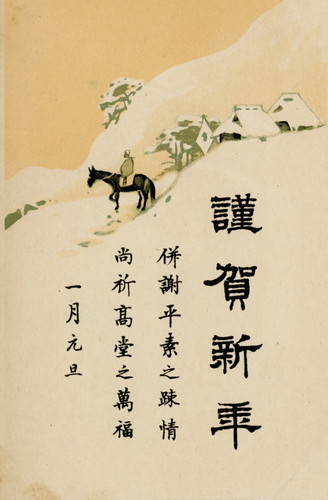 謹賀新年
併謝平素之疎情
尚祈高堂之萬福
一月元旦